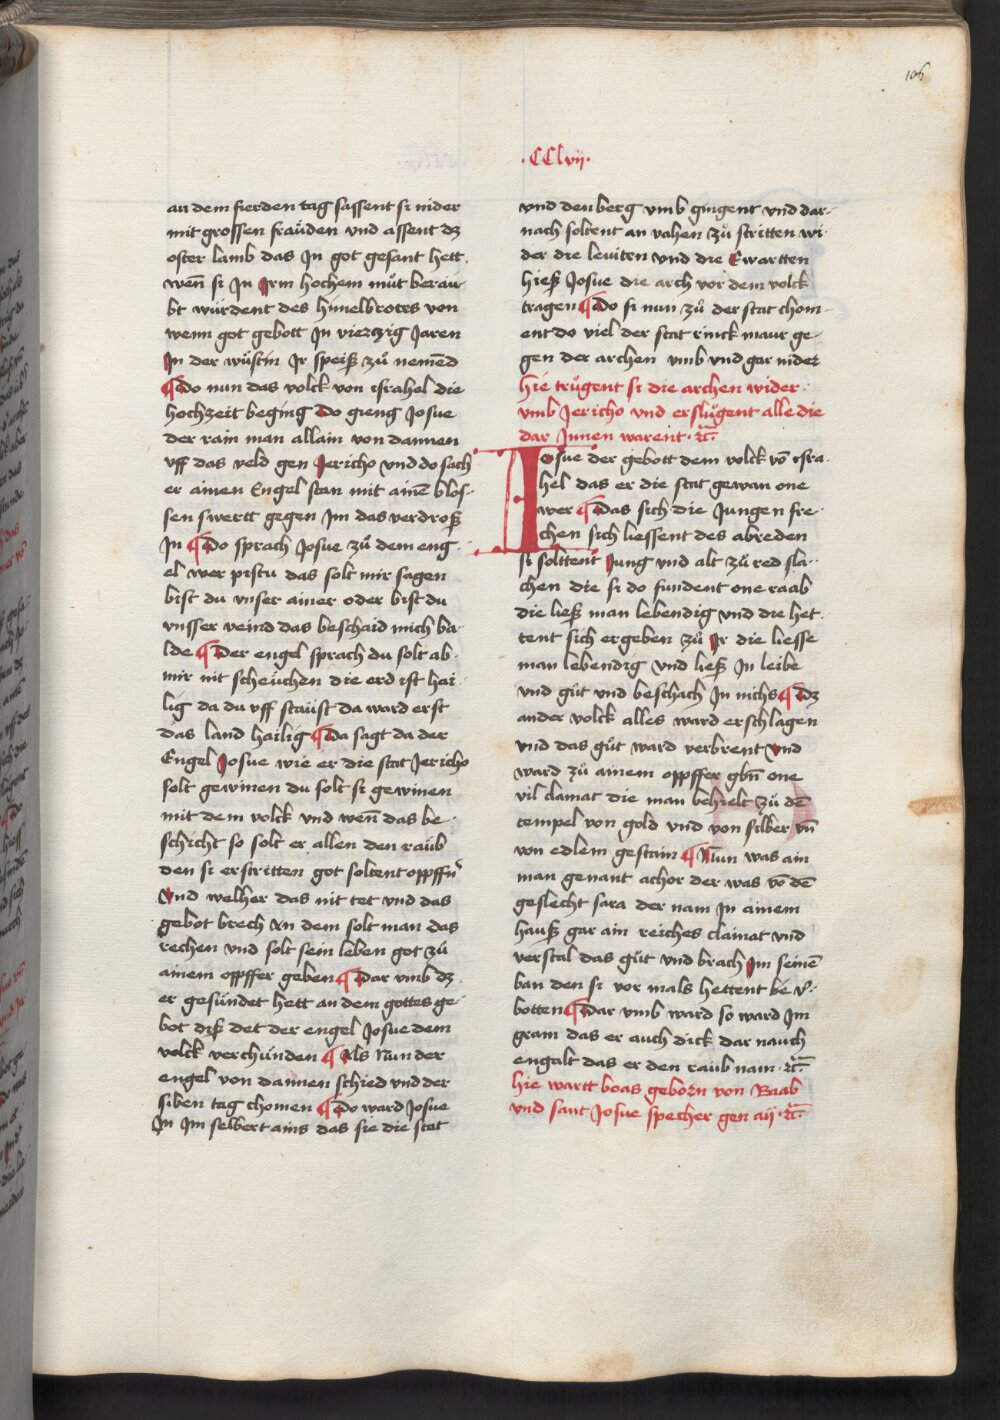 106
.CClvij.
an dem fierden tag sassent si nider
mit grossen fraüden vnd assent dz
oster lamb das Jn got gesant hett.
weñ si Jn Jrm hochem můt beraü-
bt würdent des himelbrotes von
wenn got gebott Jn vierczig Jaren
Jn der wůstin Jr speiß zů nemēd
¶ Do nun das volck von israhel die
hochzeit beging Do gieng Josue
der rain man allain von dannen
vff das veld gen Jericho vnd do sach
er ainen Engel stan mit ainē blos-
sen swertt gegen Jm das verdroß
Jn ¶ Do sprach Josue zů dem eng-
el wer pistu das solt mir sagen
bist du vnser ainer oder bist du
vnsser veind das beschaid mich ba-
lde ¶ Der engel sprach du solt ab
mir nit scheüchen die erd ist hai-
lig da du vff staüst da ward erst
das land hailig ¶ Da sagt da der
Engel Josue wie er die stat Jericho
solt gewinen du solt si gewinen
mit dem volck vnd weñ das be-
schicht so solt er allen den raüb
den si erstritten got soltent opffñ
Vnd welher das nit tet vnd das
gebot brech an dem solt man das
rechen vnd solt sein leben got zů
ainem opffer geben ¶ Dar vmb dz
er gesündet hett an dem gottes ge-
bot diß det der engel Josue dem
volck verchünden ¶ Als Nun der
engel von dannen schied vnd der
siben tag chomen ¶ Do ward Josue
Jn Jm selbert ains das sie die stat
vnd den berg vmb gingent vnd dar-
nach soltent an vahen zů stritten wi-
der die leviten vnd die Ewartten
hieß Josue die arch vor dem volck
tragen ¶ Do si nun zů der stat chom-
ent do viel der stat rinck maur ge-
gen der archen vmb vnd gar nider
hie trůgent si die archen wider
vmb Jericho vnd erslůgent alle die
dar Jnnen warent. ꝛc̄.
Josue der gebott dem volck vō isra-
hel das er die stat gewan one
wer ¶ Das sich die Jungen fre-
chen sich liessent des abreden
si solttent Jung vnd alt zů red sla-
chen die si do fundent one raab
die ließ man lebendig vnd die het-
tent sich ergeben zů Jr die liesse
man lebendig vnd ließ Jn leibe
vnd gůt vnd beschach Jn nichs ¶ Dz
ander volck alles ward erschlagen
vnd das gůt ward verbrent Vnd
ward zů ainem oppffer gbñ one
vil clainat die man behielt zů dē
tempel von gold vnd von silber vñ
von edlem gestain ¶ Nun was ain
man genant achor der was vō dē
geslecht sara der nam Jn ainem
hauß gar ain reiches clainat vnd
verstal das gůt vnd brach Jm seinē
ban den si vor mals hettent be v̓-
botten ¶ Dar vmb ward so ward Jm
gram das er auch dick dar nauch
engalt das er den raub nam. ꝛc̄.
hie wartt boas geborn von Raab
vnd sant Josue specher gen aij. ꝛc̄.